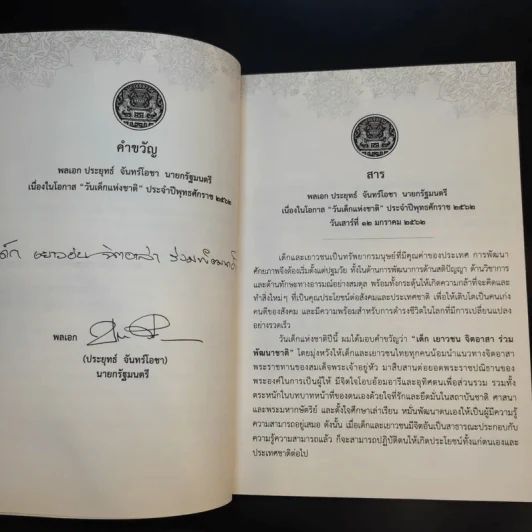 คำขวัญ
พลเอก ประยุทธ์ จันทร์โอชา นายกรัฐมนตรี
เนื่องในโอกาส "วันเด็กแห่งชาติ" ประจำปีพุทธศักราช ๒๕๖๒
เด็ก เยาวชน จิตอาสา ร่วมพัฒนาชาติ
พลเอก
(ประยุทธ์ จันทร์โอชา)
นายกรัฐมนตรี
สาร
พลเอก ประยุทธ์ จันทร์โอชา นายกรัฐมนตรี
เนื่องในโอกาส "วันเด็กแห่งชาติ" ประจำปีพุทธศักราช ๒๕๖๒
วันเสาร์ที่ ๑๒ มกราคม ๒๕๖๒
เด็กและเยาวชนเป็นทรัพยากรมนุษย์ที่มีคุณค่าของประเทศ การพัฒนา
ศักยภาพจึงต้องเริ่มตั้งแต่ปฐมวัย ทั้งในด้านการพัฒนาการด้านสติปัญญา ด้านวิชาการ
และด้านทักษะทางอารมณ์อย่างสมดุล พร้อมทั้งกระตุ้นให้เกิดความกล้าที่จะคิดและ
ทำสิ่งใหม่ๆ ที่เป็นคุณประโยชน์ต่อสังคมและประเทศชาติ เพื่อให้เติบโตเป็นคนเก่ง
คนดีของสังคม และมีความพร้อมสำหรับการดำรงชีวิตในโลกที่มีการเปลี่ยนแปลง
อย่างรวดเร็ว
วันเด็กแห่งชาติปีนี้ ผมได้มอบคำขวัญว่า "เด็ก เยาวชน จิตอาสา ร่วม
พัฒนาชาติ" โดยมุ่งหวังให้เด็กและเยาวชนไทยทุกคนน้อมนำแนวทางจิตอาสา
พระราชทานของสมเด็จพระเจ้าอยู่หัว มาสืบสานต่อยอดพระราชปณิธานของ
พระองค์ในการเป็นผู้ให้ มีจิตใจโอบอ้อมอารีและอุทิศตนเพื่อส่วนรวม รวมทั้ง
ตระหนักในบทบาทหน้าที่ของตนเองด้วยใจที่รักและยึดมั่นในสถาบันชาติ ศาสนา
และพระมหากษัตริย์ และตั้งใจศึกษาเล่าเรียน หมั่นพัฒนาตนเองให้เป็นผู้มีความรู้
ความสามารถอยู่เสมอ ดังนั้น เมื่อเด็กและเยาวชนมีจิตอันเป็นสาธารณะประกอบกับ
ความรู้ความสามารถแล้ว ก็จะสามารถปฏิบัติตนให้เกิดประโยชน์ทั้งแก่ตนเองและ
ประเทศชาติต่อไป